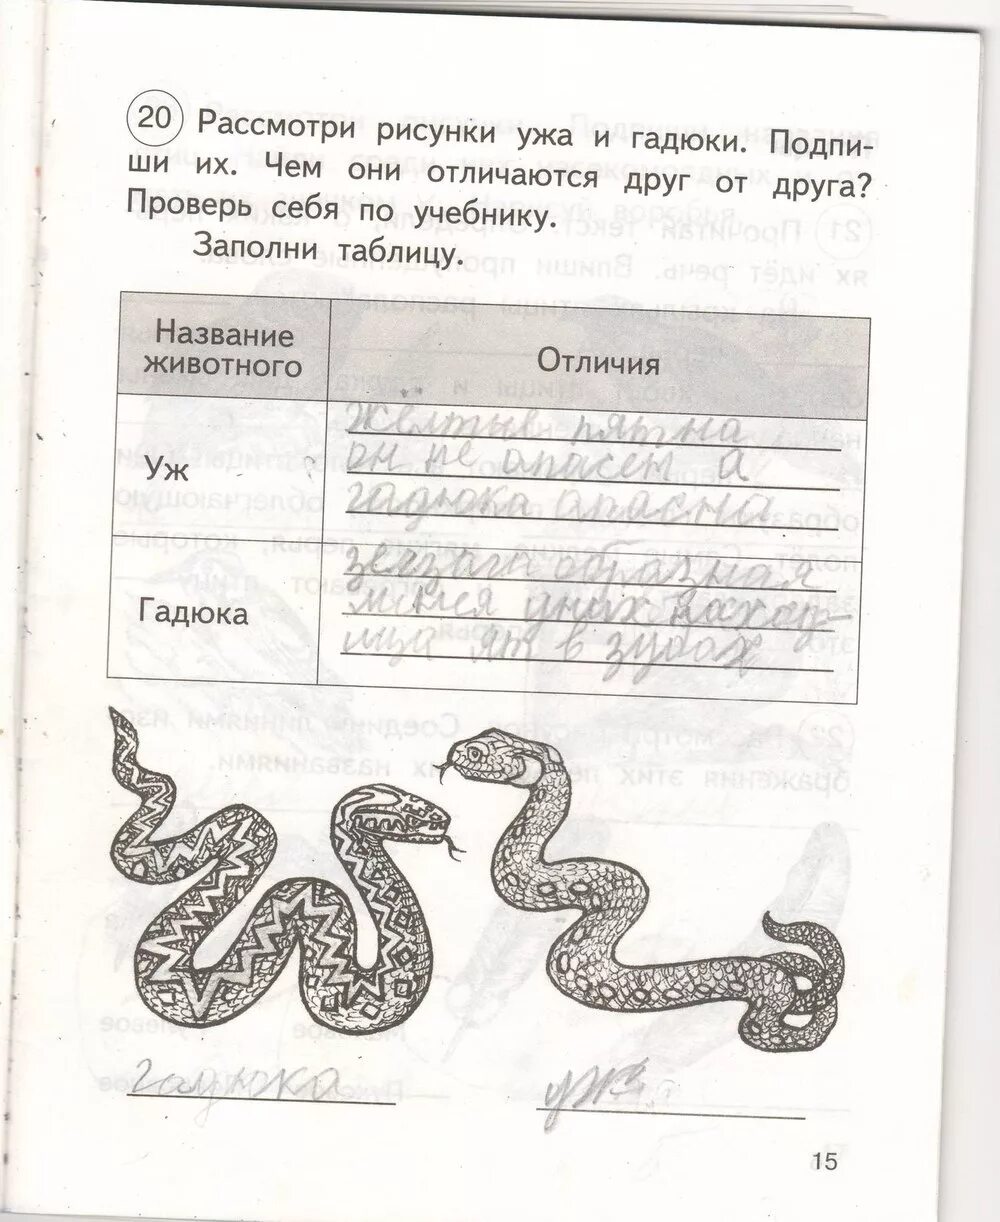 20 Рассмотри рисунки ужа и гадюки. Подпи-
ши их. Чем они отличаются друг от друга?
Проверь себя по учебнику.
Заполни таблицу.
Название
животного
Отличия
Уж
Желтые пятна
он не опасен а
гадюка опасна
Гадюка
зегзаго образная
у них наход-
ица ят в зубах
гадюка
уж
15